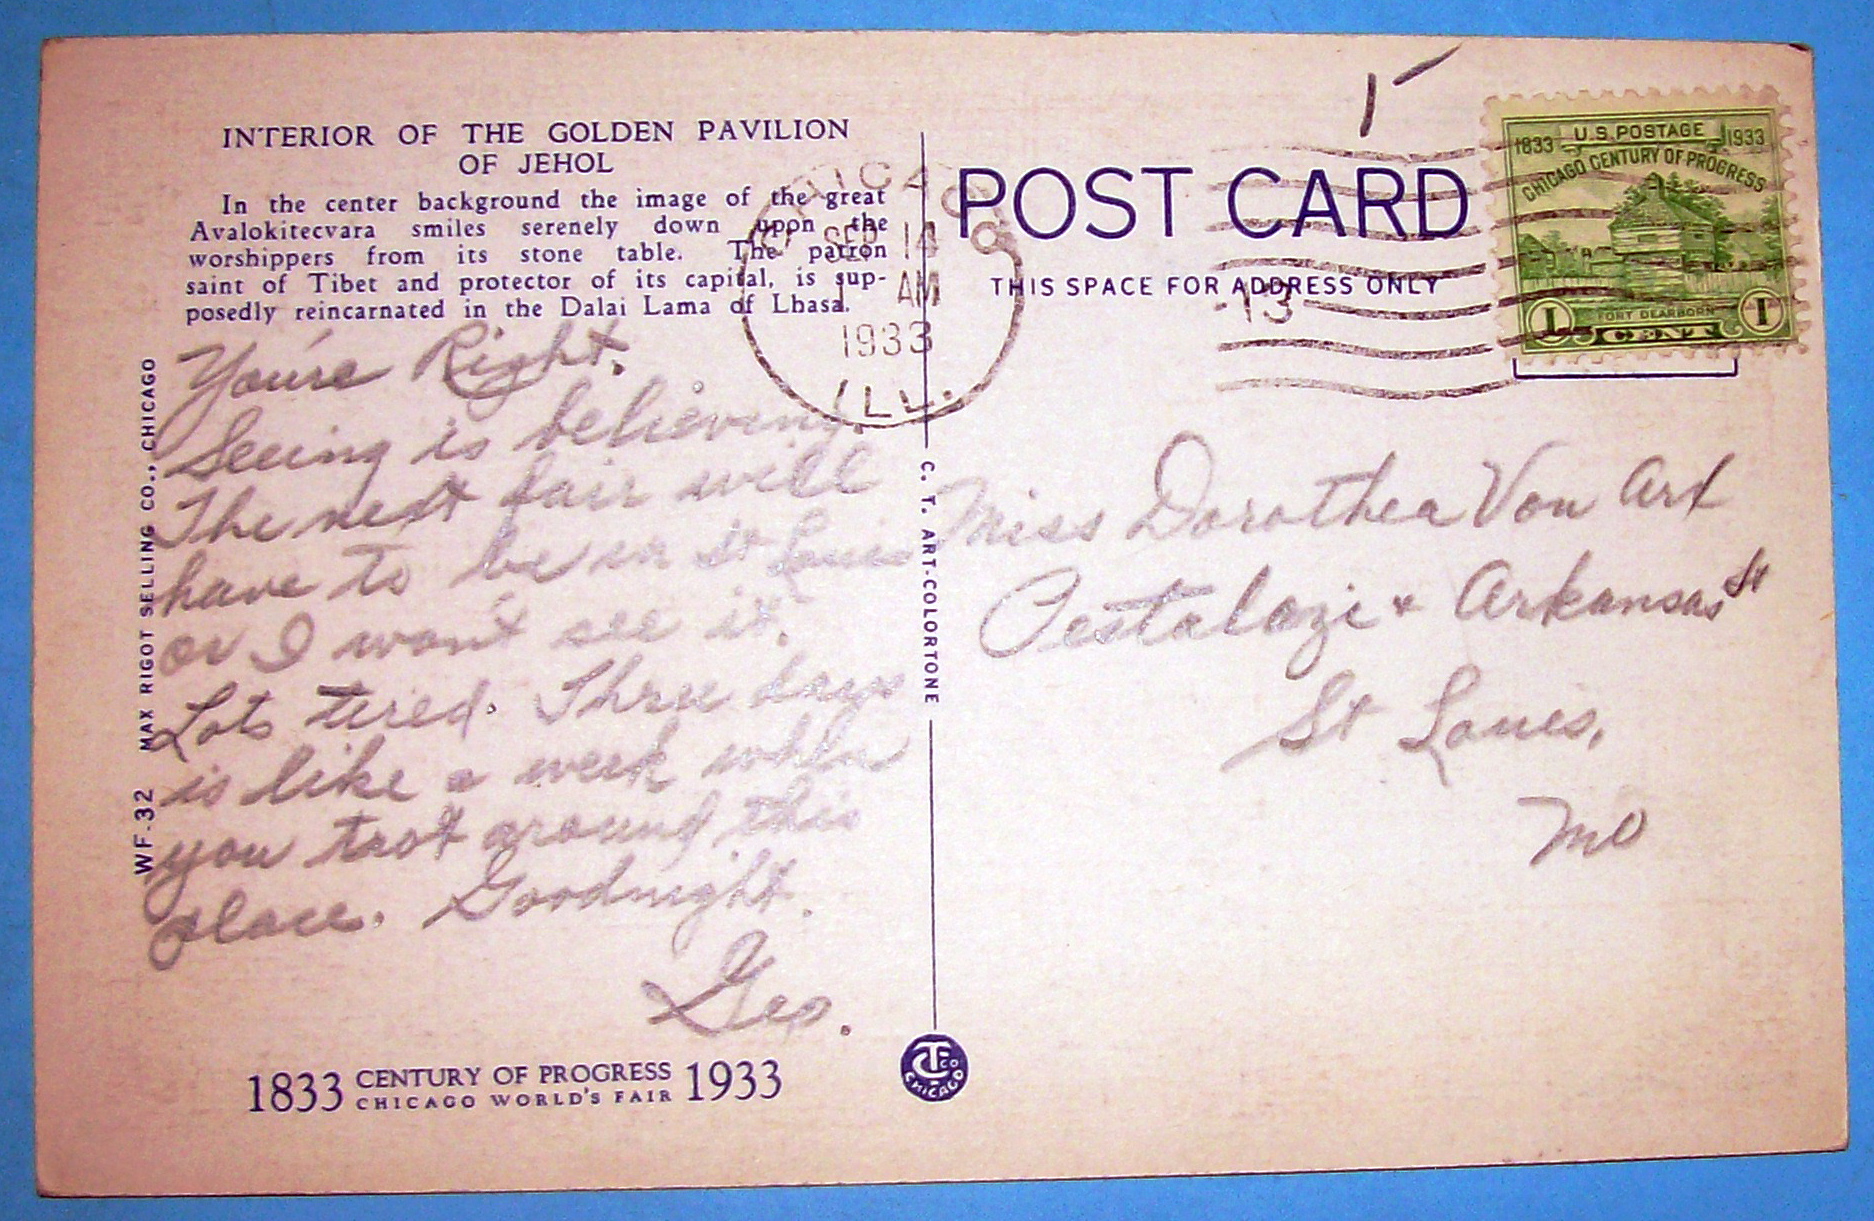 INTERIOR OF THE GOLDEN PAVILION
OF JEHOL
In the center background the image of the great
Avalokitecvara smiles serenely down upon the
worshippers from its stone table. The patron
saint of Tibet and protector of its capital, is sup-
posedly reincarnated in the Dalai Lama of Lhasa.
You're Right.
Seeing is believing.
The next fair will
have to be in St Louis
or I won't see it.
Lots tired. Three days
is like a week when
you trot around this
place. Goodnight.
Geo.
1833 CENTURY OF PROGRESS 1933
CHICAGO WORLD'S FAIR
WF-32 MAX RIGOT SELLING CO., CHICAGO
C. T. ART-COLORTONE
CTCO
CHICAGO
CHICAGO
SEP 14
AM
1933
ILL.
POST CARD
THIS SPACE FOR ADDRESS ONLY
13
1833 U.S. POSTAGE 1933
CHICAGO CENTURY OF PROGRESS
FORT DEARBORN
1 CENT 1
Miss Dorothea Von Arx
Pestalozi & Arkansas St
St Louis,
Mo